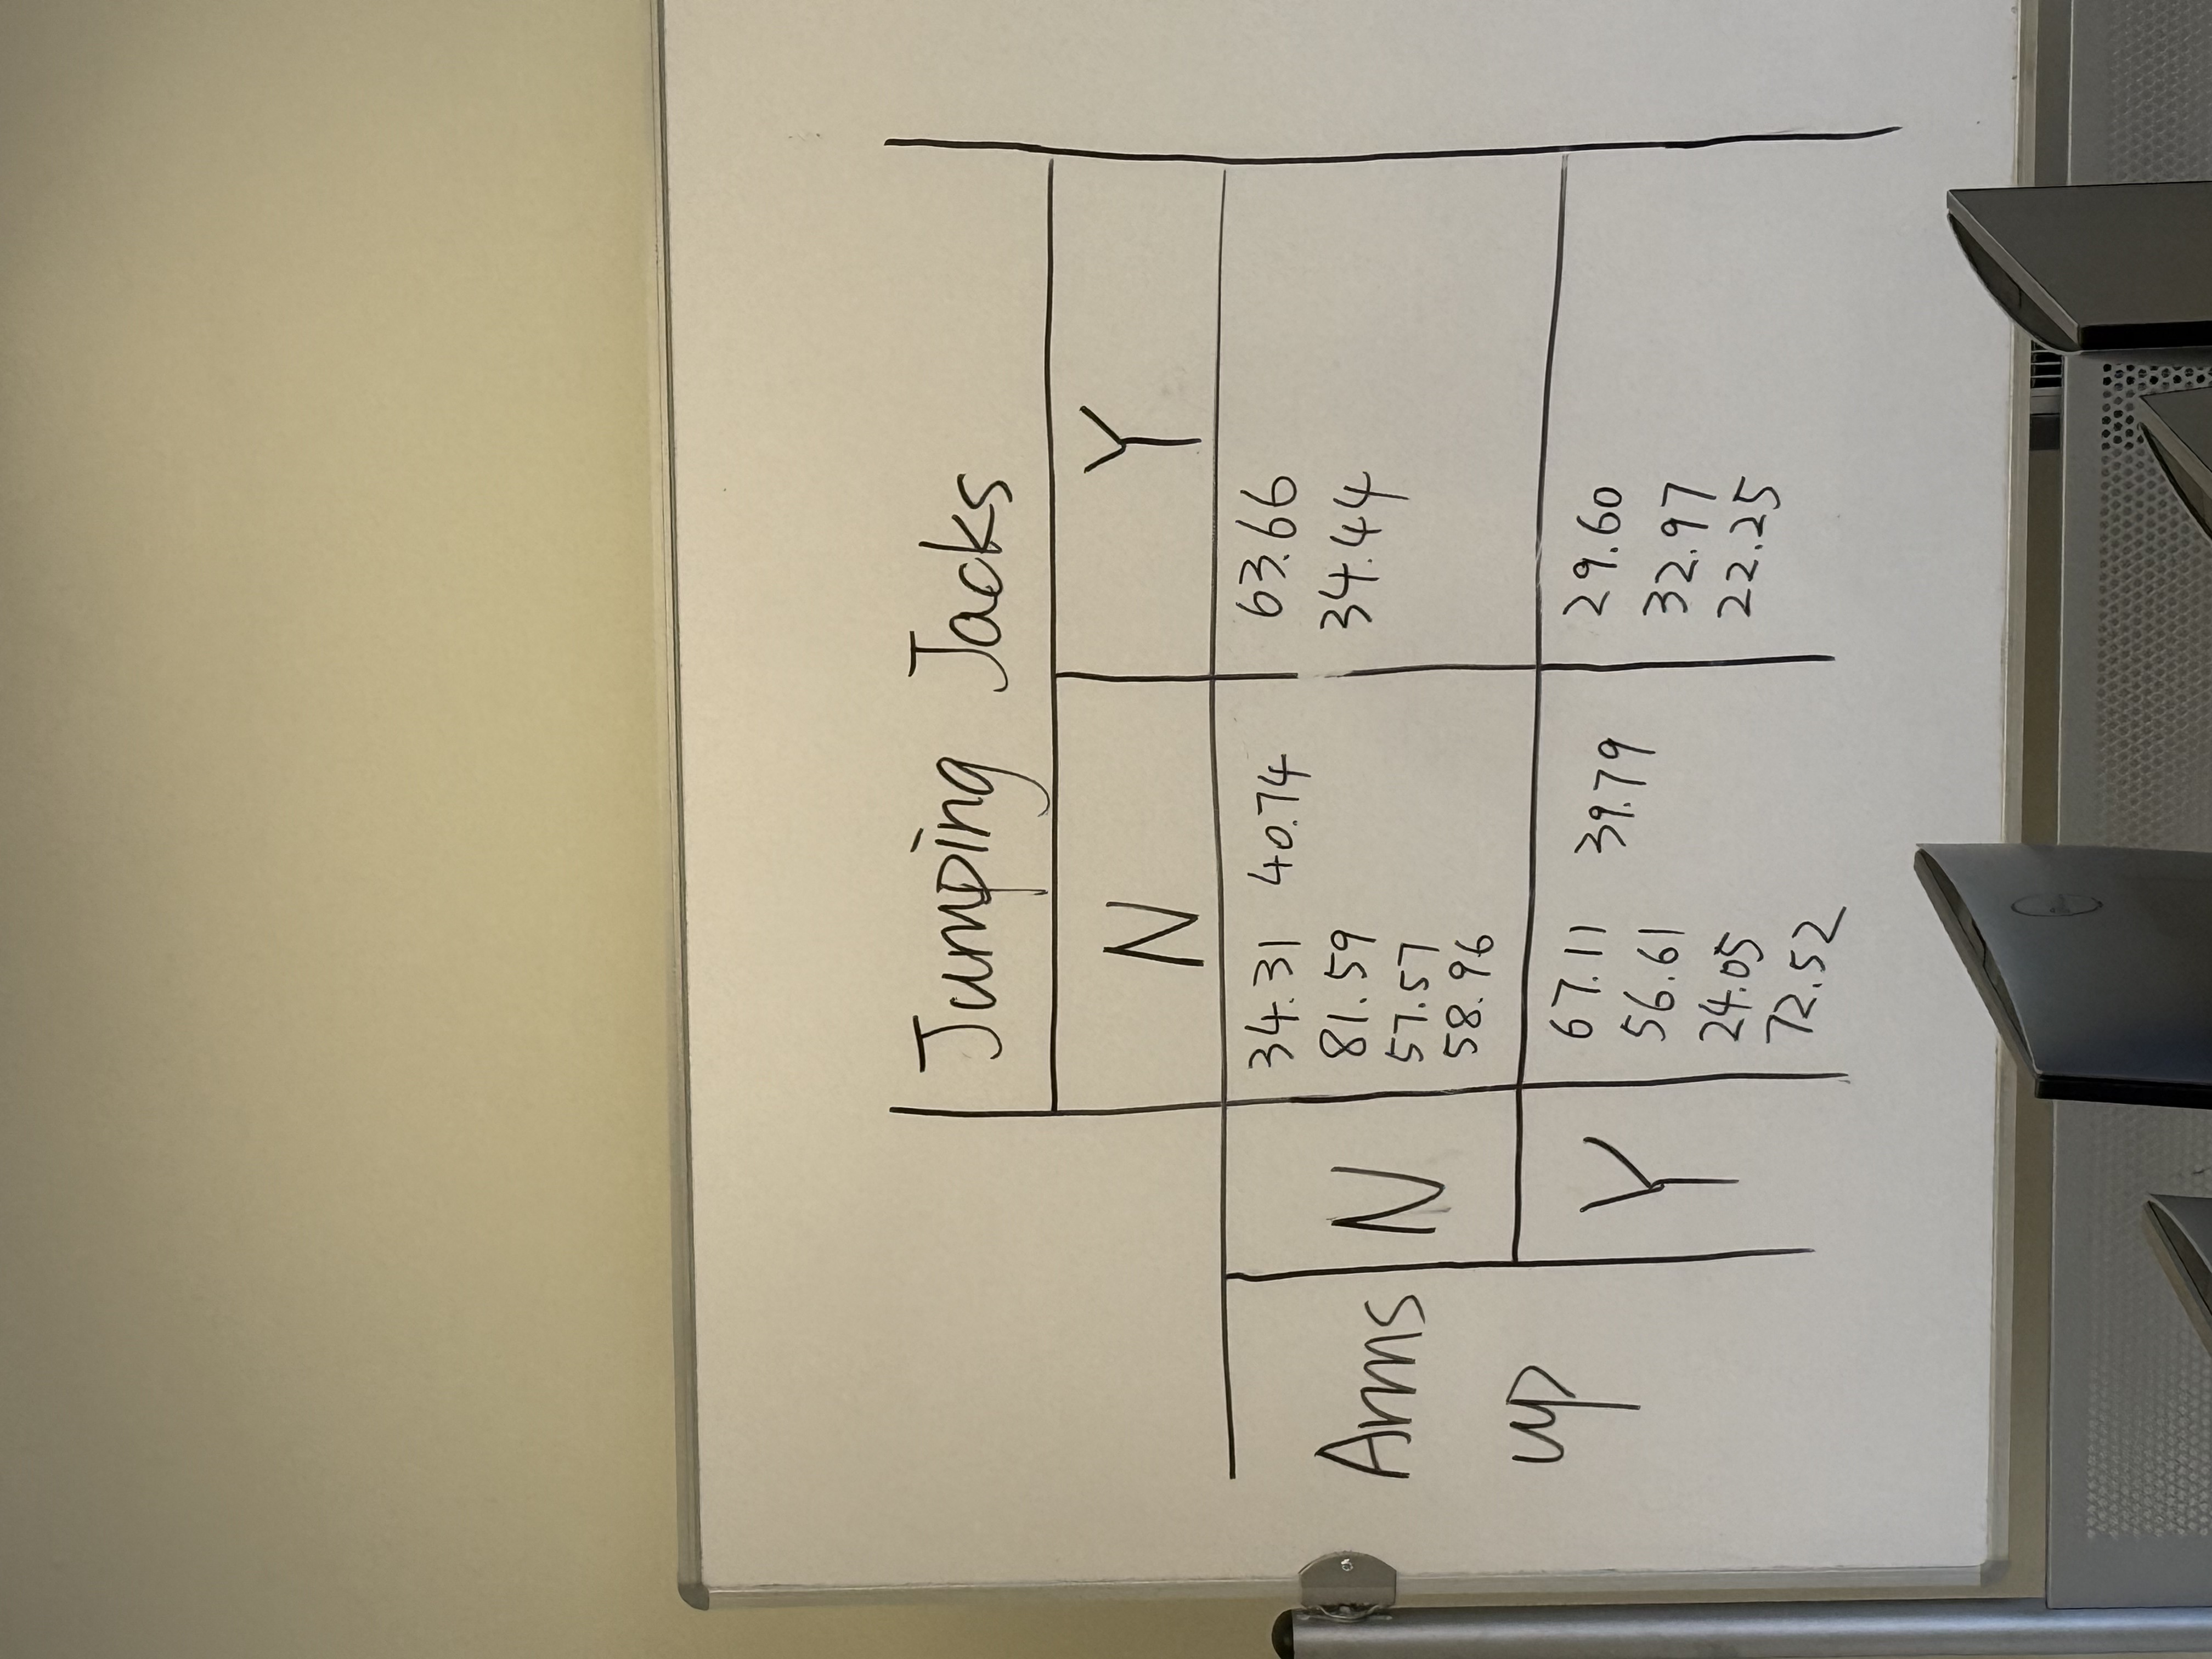 Jumping Jacks
N Y
Arms up
N
34.31 40.74
81.59
57.57
58.96
63.66
34.44
Y
67.11 39.79
56.61
24.05
72.52
29.60
32.97
22.25